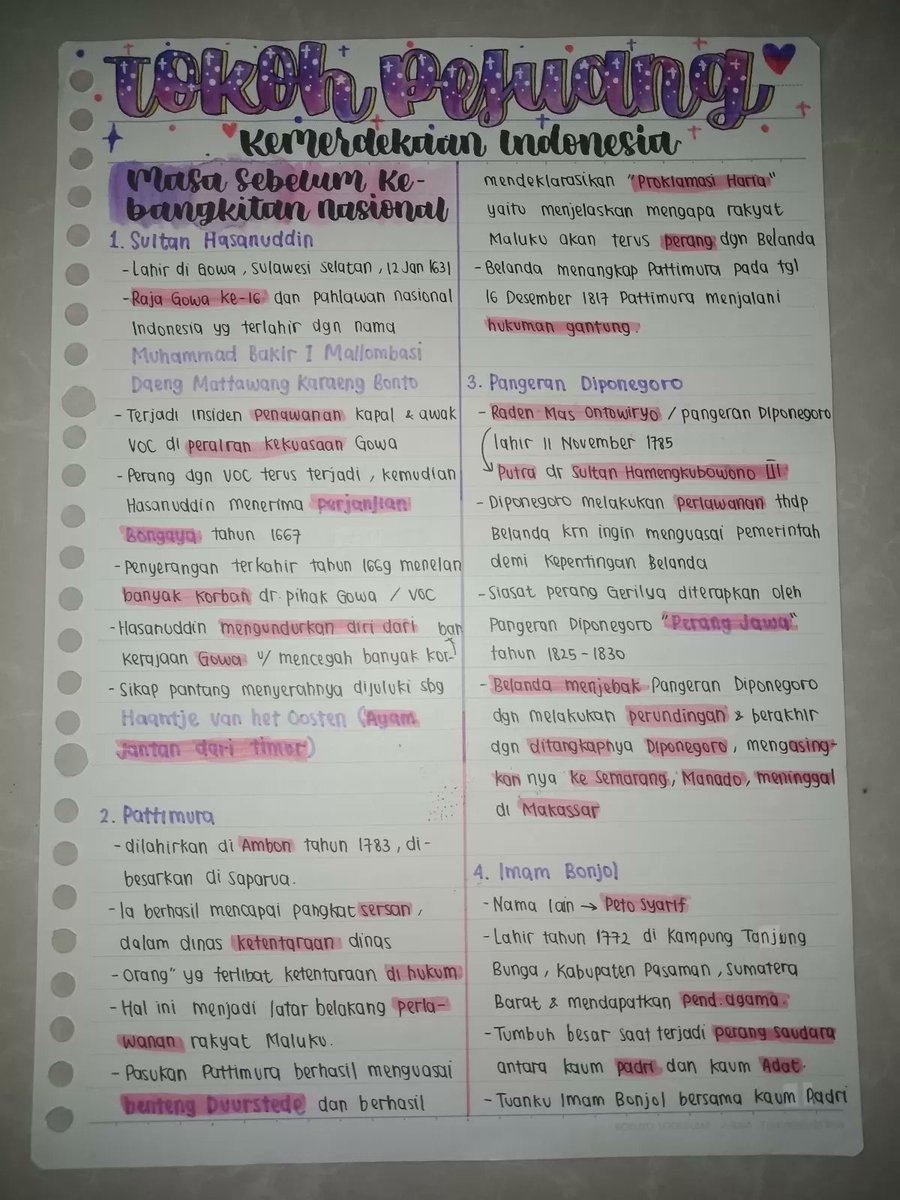 Tokoh Pejuang
Kemerdekaan Indonesia
Masa Sebelum Ke-
bangkitan Nasional
1. Sultan Hasanuddin
- Lahir di Gowa, Sulawesi Selatan, 12 Jan 1631
- Raja Gowa ke-16 dan pahlawan nasional
Indonesia yg terlahir dgn nama
Muhammad Bakir I Mallombasi
Daeng Mattawang Karaeng Bonto
- Terjadi insiden penawanan kapal & awak
VOC di perairan kekuasaan Gowa
- Perang dgn VOC terus terjadi, kemudian
Hasanuddin menerima perjanjian
Bongaya tahun 1667
- Penyerangan terkahir tahun 1669 menelan
banyak korban dr pihak Gowa / VOC
- Hasanuddin mengundurkan diri dari ban
kerajaan Gowa u/ mencegah banyak kor-
- Sikap pantang menyerahnya dijuluki sbg
Haantje van het Oosten (Ayam
Jantan dari timor)
2. Pattimura
- dilahirkan di Ambon tahun 1783, di-
besarkan di Saparua.
- Ia berhasil mencapai pangkat sersan,
dalam dinas ketentaraan dinas
- Orang" yg terlibat ketentaraan di hukum
- Hal ini menjadi latar belakang perla-
wanan rakyat Maluku.
- Pasukan Pattimura berhasil menguasai
benteng Duurstede dan berhasil
mendeklarasikan "Proklamasi Haria"
yaitu menjelaskan mengapa rakyat
Maluku akan terus perang dgn Belanda
- Belanda menangkap Pattimura pada tgl
16 Desember 1817 Pattimura menjalani
hukuman gantung.
3. Pangeran Diponegoro
- Raden Mas Ontowiryo / pangeran Diponegoro
lahir 11 November 1785
Putra dr Sultan Hamengkubowono III
- Diponegoro melakukan perlawanan thdp
Belanda krn ingin menguasai pemerintah
demi kepentingan Belanda
- Siasat perang Gerilya diterapkan oleh
Pangeran Diponegoro "Perang Jawa"
tahun 1825-1830
- Belanda menjebak Pangeran Diponegoro
dgn melakukan perundingan & berakhir
dgn ditangkapnya Diponegoro, mengasing-
kan nya ke Semarang, Manado, meninggal
di Makassar
4. Imam Bonjol
- Nama lain → Peto Syarif
- Lahir tahun 1772 di Kampung Tanjung
Bunga, Kabupaten Pasaman, Sumatera
Barat & mendapatkan pend. agama.
- Tumbuh besar saat terjadi perang saudara
antara kaum padri dan kaum Adat.
- Tuanku Imam Bonjol bersama kaum Padri